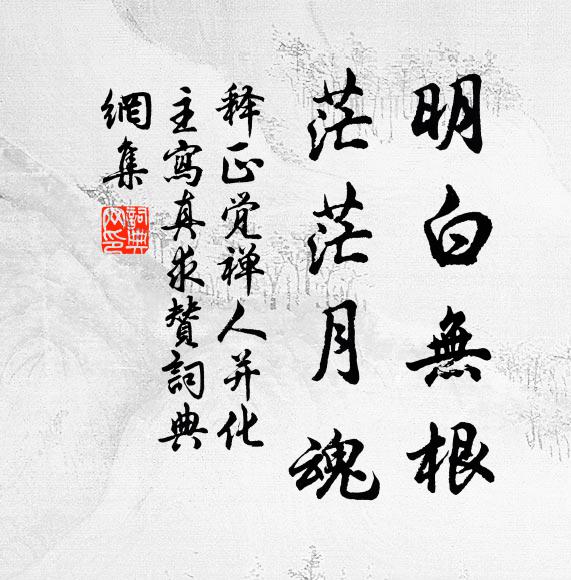 明白無根
茫茫月魂
释正觉禅人并化
主寫真求贊詞典
網集
詞典網印